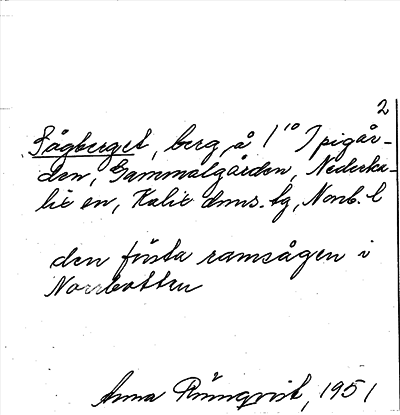 2
Sågberget, berg å 1¹⁰ Ipigår-
den, Gammalgården, Nederka-
lix en, Kalix dmns. tg, Norrb. l
den första ramsågen i
Norrbotten
Anna Rönnqvist, 1951